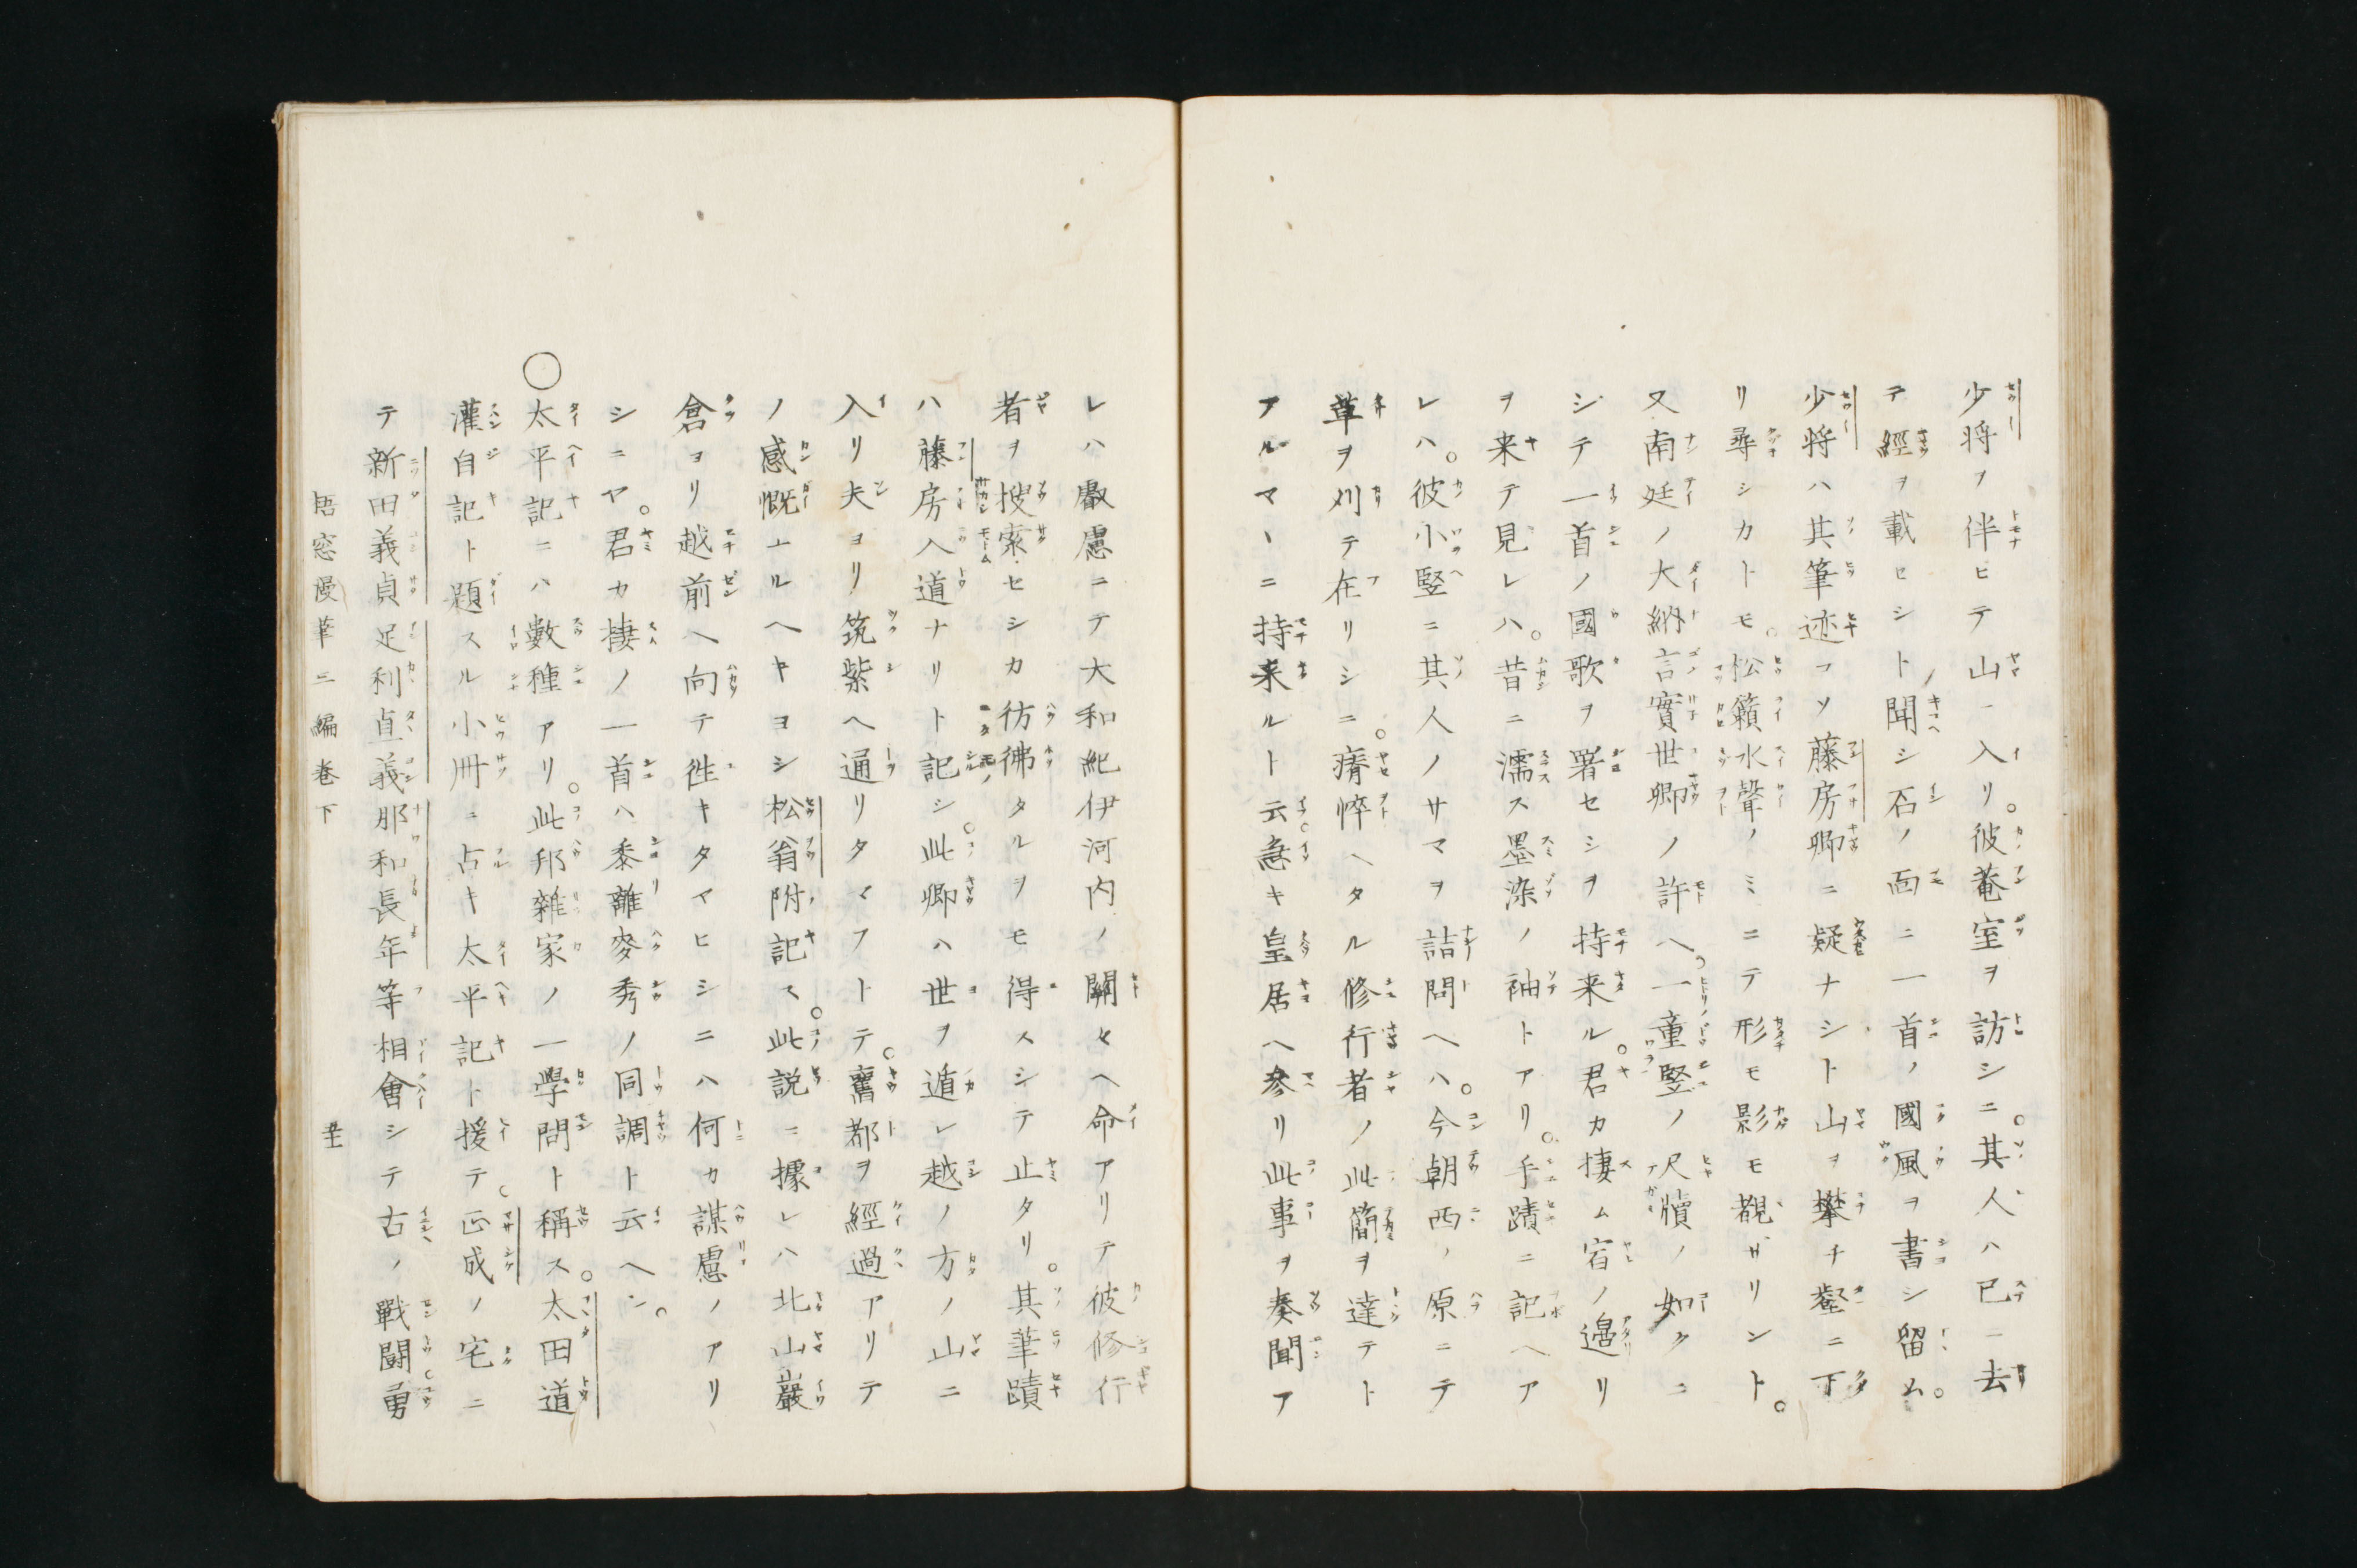 少将ヲ伴ヒテ山ニ入リ。彼菴室ヲ訪シニ。其人ハ已ニ去
テ經ヲ載セシト聞シ石ノ面ニ一首ノ國風ヲ書シ留ム。
少将ハ其筆迹コソ藤房卿ニ疑ナシト山ヲ攀チ壑ニ下
リ尋シカトモ。松籟水聲ノミニテ形モ影モ覩ザリント。
又南廷ノ大納言實世卿ノ許ヘ。一童竪ノ尺牘ノ如クニ
シテ一首ノ國歌ヲ署セシヲ持来ル。君カ捿ム宿ノ邉リ
ヲ来テ見レハ。昔ニ濡ス墨染ノ袖トアリ。手蹟ニ記ヘア
レハ。彼小竪ニ其人ノサマヲ詰問ヘハ。今朝西ノ原ニテ
草ヲ刈テ在リシニ。瘠悴ヘタル修行者ノ此簡ヲ達テト
アルマヽニ持来ルト云。急キ皇居ヘ参リ此事ヲ奏聞ア
レハ叡慮ニテ大和紀伊河内ノ關々ヘ命アリテ彼修行
者ヲ捜索セシカ彷彿タルヲモ得スシテ止タリ。其筆蹟
ハ藤房入道ナリト記シ。此卿ハ世ヲ遁レ越ノ方ノ山ニ
入リ夫ヨリ筑紫ヘ通リタマフトテ。舊都ヲ經過アリテ
ノ感慨ナルヘキヨシ松翁附記ス。此説ニ據レハ北山巖
倉ヨリ越前ヘ向テ徃キタマヒシニハ何カ謀慮ノアリ
シニヤ。君カ棲ノ一首ハ黍離麥秀ノ同調ト云ヘシ。
○太平記ニハ數種アリ。此邦雜家ノ一學問ト稱ス。太田道
灌自記ト題スル小冊ニ占キ太平記ト援テ。正成ノ宅ニ
テ新田義貞足利直義那和長年等相會シテ古ノ戰闘勇
梧窓漫筆二編巻下